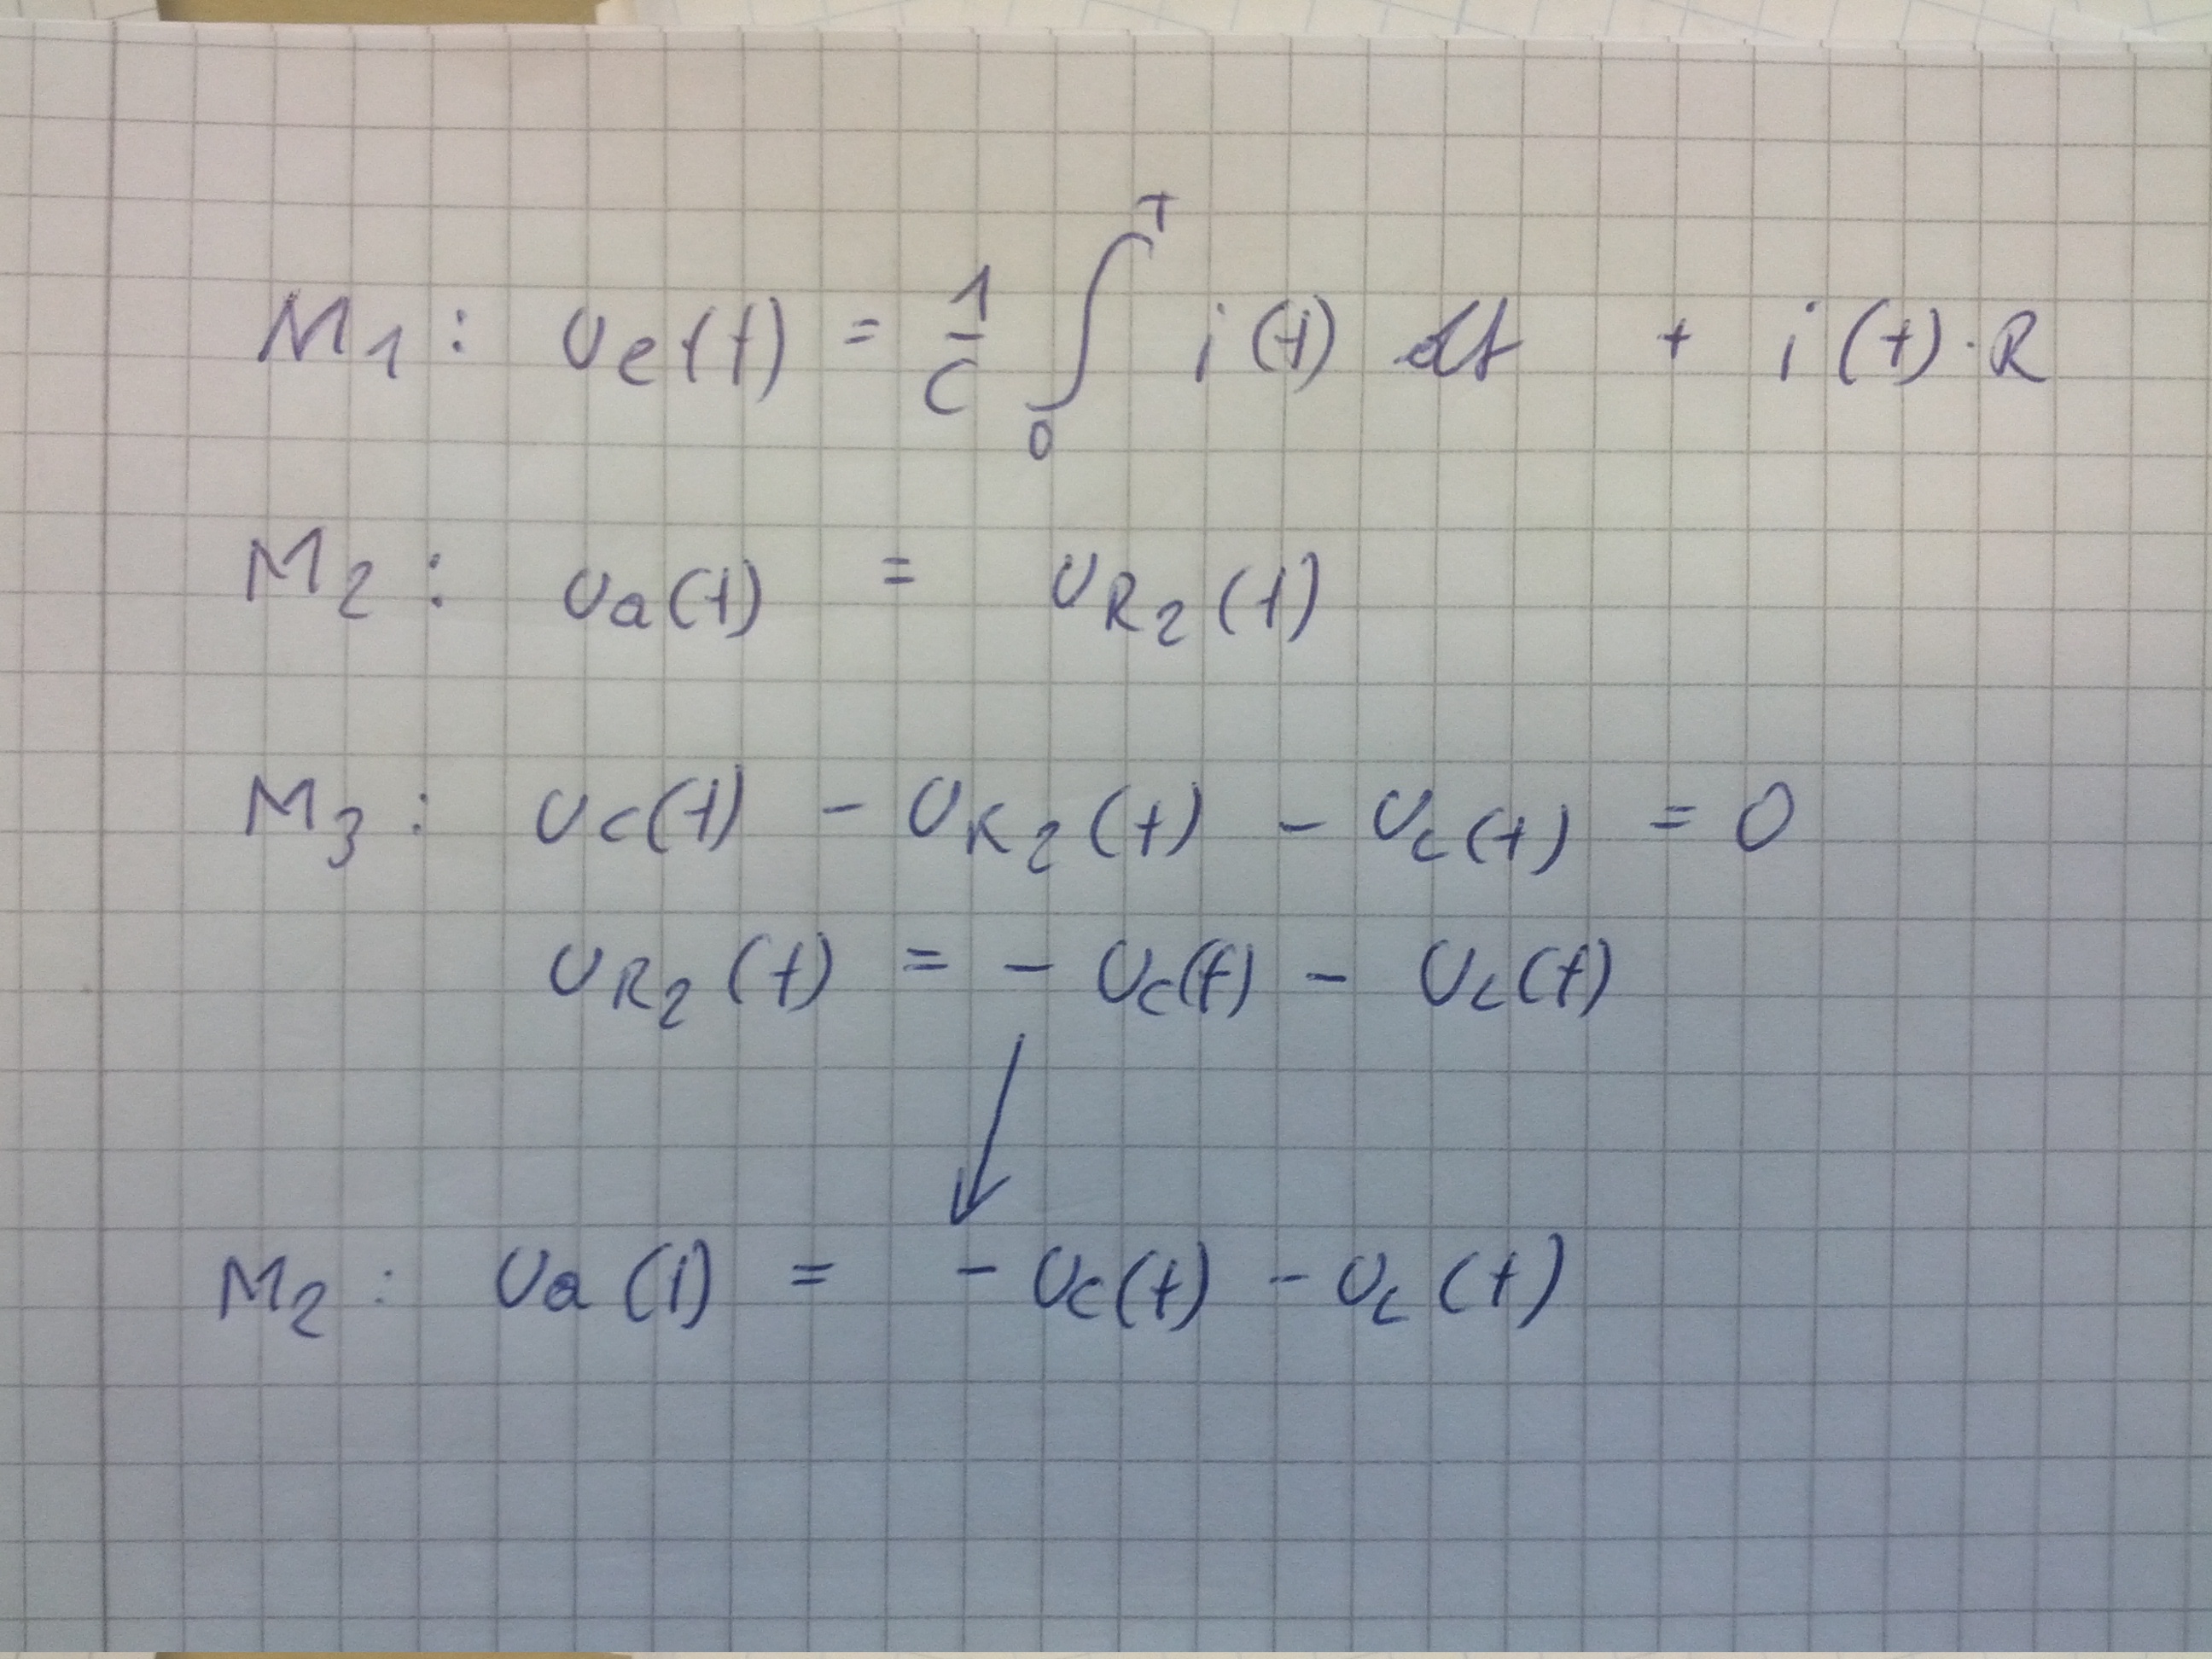 M₁: u_e(t) = 1/C ∫₀ᵀ i(t) dt + i(t) · R
M₂: u_a(t) = u_R₂(t)
M₃: u_C(t) - u_R₂(t) - u_L(t) = 0
u_R₂(t) = - u_C(t) - u_L(t)
M₂: u_a(t) = - u_C(t) - u_L(t)